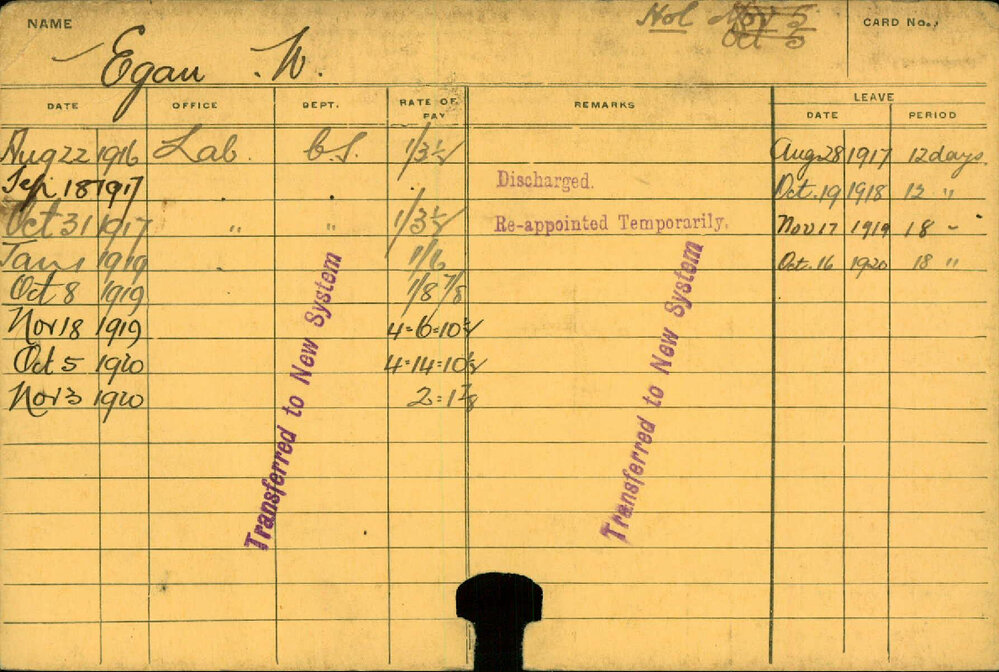 NAME Egan W. Hol Nov 5 CARD No.
Oct 5
DATE OFFICE DEPT. RATE OF PAY REMARKS LEAVE
DATE PERIOD
Aug 22 1916 Lab. 1/3½ Aug 28 1917 12 days.
Sep. 18 1917 Discharged. Oct. 19 1918 12 "
Oct 31 1917 " " 1/3½ Re-appointed Temporarily. Nov 17 1919 18 "
Jan 1 1919 1/6 Oct. 16 1920 18 "
Oct 8 1919 1/8 7/8
Nov 18 1919 4=6=10½
Oct 5 1920 4=14=10½
Nov 3 1920 2=1 7/8
Transferred to New System
Transferred to New System